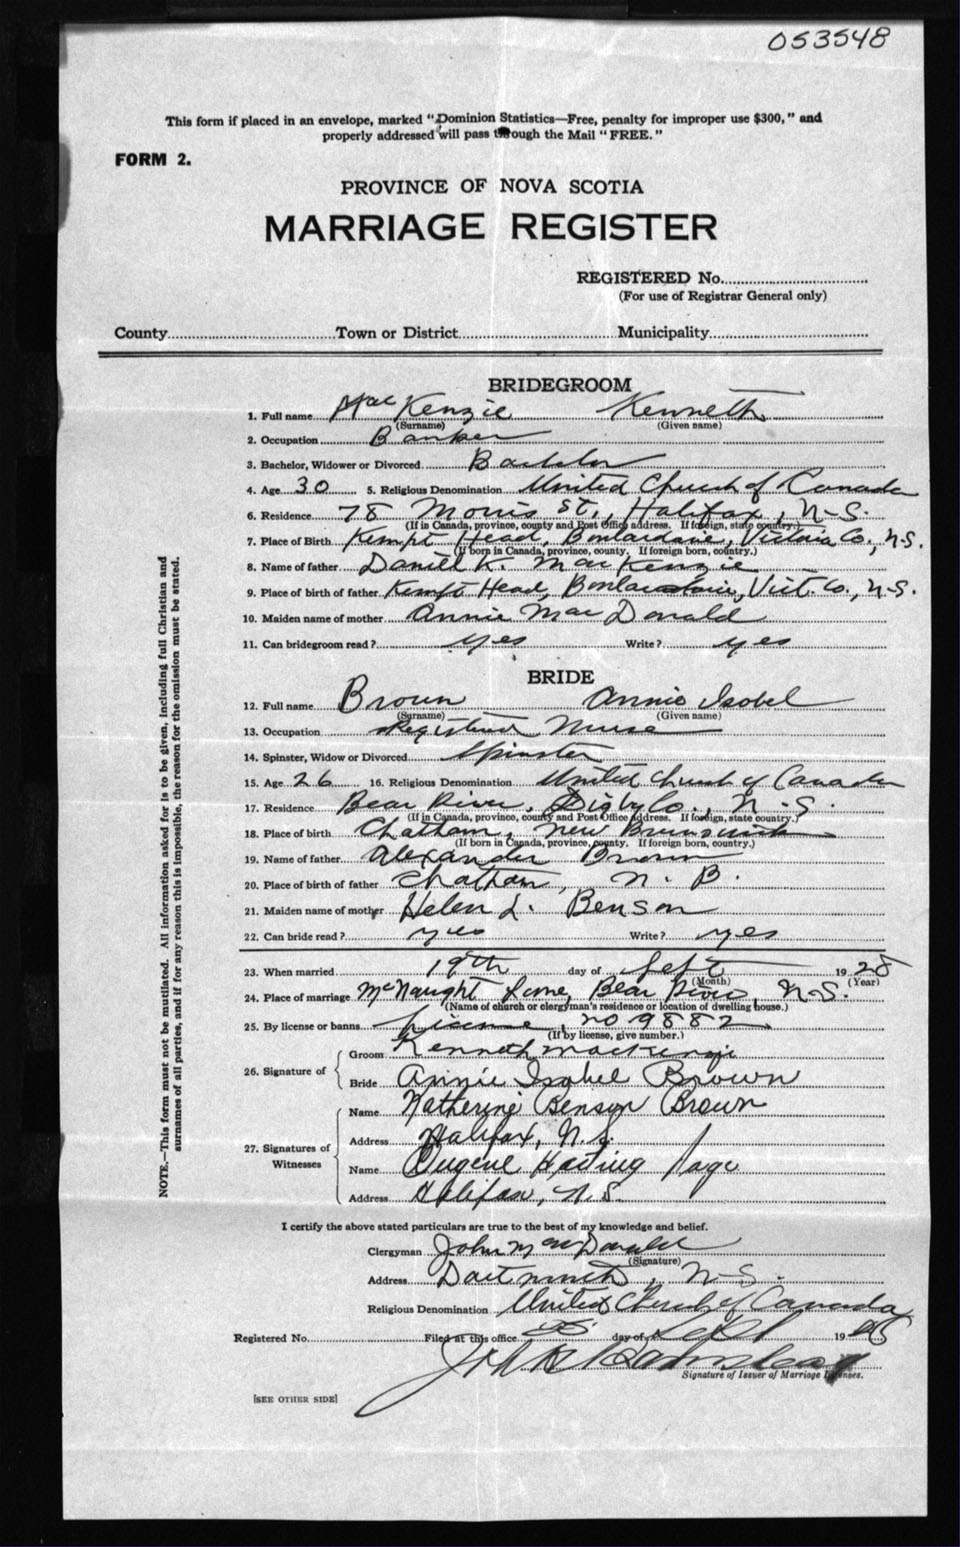 053548
This form if placed in an envelope, marked "Dominion Statistics—Free, penalty for improper use $300," and
properly addressed will pass through the Mail "FREE."
FORM 2.
PROVINCE OF NOVA SCOTIA
MARRIAGE REGISTER
REGISTERED No.
(For use of Registrar General only)
County Town or District Municipality
BRIDEGROOM
1. Full name MacKenzie Kenneth
(Surname) (Given name)
2. Occupation Banker
3. Bachelor, Widower or Divorced Bachelor
4. Age 30 5. Religious Denomination United Church of Canada
6. Residence 78 Morris St., Halifax, N-S.
(If in Canada, province, county and Post Office address. If foreign, state country.)
7. Place of Birth Kempt Head, Victoria Co., N.S.
(If born in Canada, province, county. If foreign born, country.)
8. Name of father Daniel K. MacKenzie
9. Place of birth of father Kempt Head, Vict. Co., N-S.
10. Maiden name of mother Annie MacDonald
11. Can bridegroom read? yes Write? yes
BRIDE
12. Full name Brown Annie Isobel
(Surname) (Given name)
13. Occupation Registered Nurse
14. Spinster, Widow or Divorced Spinster
15. Age 26 16. Religious Denomination United Church of Canada
17. Residence Bear River, Digby Co., N.S.
(If in Canada, province, county and Post Office Address. If foreign, state country.)
18. Place of birth Chatham, New Brunswick
(If born in Canada, province, county. If foreign born, country.)
19. Name of father Alexander Brown
20. Place of birth of father Chatham, N. B.
21. Maiden name of mother Helen L. Benson
22. Can bride read? yes Write? yes
23. When married 19th day of Sept 1928
(Month) (Year)
24. Place of marriage McNaught Bear River, N.S.
(Name of church or clergyman's residence or location of dwelling house.)
25. By license or banns License, no 9882
(If by license, give number.)
26. Signature of
Groom Kenneth MacKenzie
Bride Annie Isobel Brown
27. Signatures of Witnesses
Name Katherine Benson Brown
Address Halifax, N.S.
Name Eugene Page
Address Halifax, N.S.
I certify the above stated particulars are true to the best of my knowledge and belief.
Clergyman John MacDonald
(Signature)
Address Dartmouth, N-S.
Religious Denomination United Church of Canada
Registered No. Filed at this office day of Sept 1928
Signature of Issuer of Marriage Licenses.
[SEE OTHER SIDE]
NOTE.—This form must not be mutilated. All information asked for is to be given, including full Christian and
surnames of all parties, and if for any reason this is impossible, the reason for the omission must be stated.